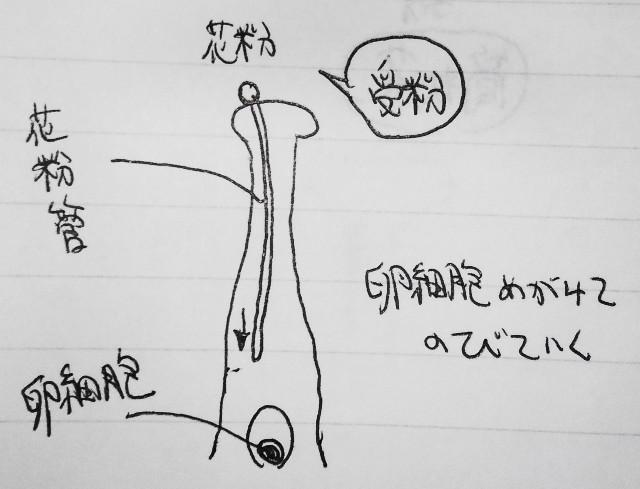 花粉
受粉
花粉管
卵細胞めがけて
のびていく
卵細胞